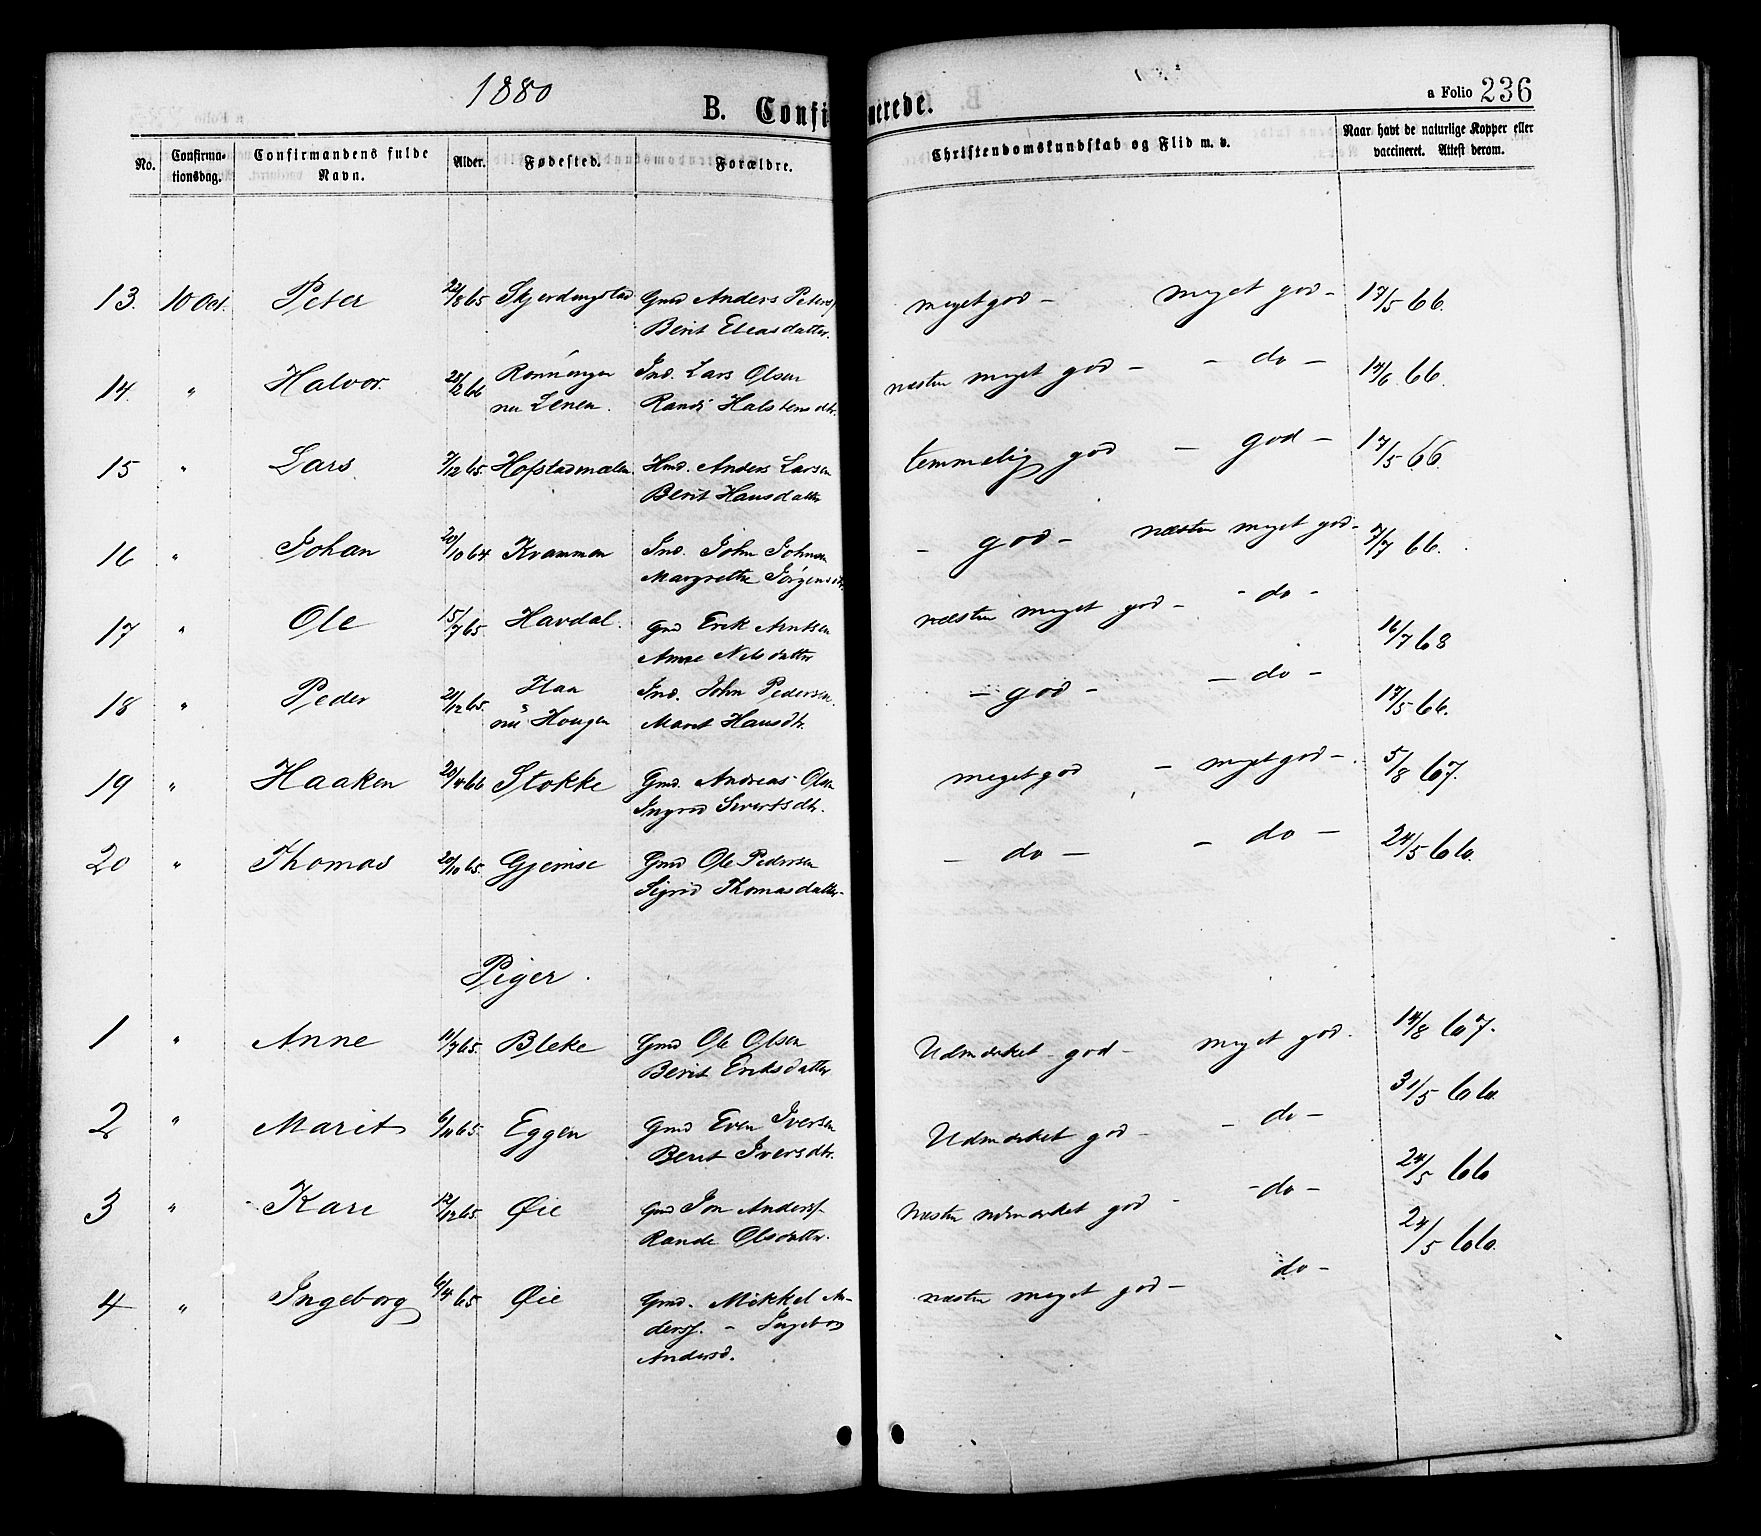 1880
B. Confirmerede.
a Folio 236
No. Confirmationsdag. Confirmandens fulde Navn. Alder. Fødested. Forældre. Christendomskundskab og Flid m. v. Naar havt de naturlige Kopper eller vaccineret. Attest derom.
13. 10 Oct. Peter 22/8 65 Skjerdingstad Gmd Anders Peters. meget god - meget god - 17/5 66.
Berit Eleasdatter.
14. " Halvor. 28/2 66 Rønningen Ind. Lars Olsen næsten meget god - - do - 14/6 66.
nu Lenen. Randi Halstensdtr.
15 " Lars. 7/12 65. Hofstadmælen Hmd. Anders Larsen temmelig god - god - 17/5 66.
Berit Hansdatter
16 " Johan 20/10 64 Krammon Ind. John Johnsen - god - næsten meget god - 7/7 66.
Margrethe Jørgensdtr.
17 " Ole 15/7 65. Havdal. Gmd Erik Arntsen næsten meget god - - do - 16/7 68
Anne Nilsdatter
18 " Peder 21/12 65. Haa Ind. John Pedersen. - god - - do - 17/5 66.
nu Hougen Marit Hansdtr.
19 " Haaken 20/4 66 Stokke Gmd. Andreas Olsen meget god - meget god - 5/8 67.
Ingrid Sivertsdtr.
20 " Thomas 20/10 65. Gjeimse Gmd Ole Pedersen - do - - do - 24/5 66.
Sigrid Thomasdatter
Piger.
1 " Anne 11/7 65. Bleke Gmd Ole Olsen Udmærket god - meget god. 14/8 67.
Berit Eriksdatter
2 " Marit 6/11 65. Eggen Gmd Even Iversen Udmærket god - - do - 31/5 66.
Berit Iversdtr.
3 " Kari 12/12 65 Øie Gmd Jon Anders. Næsten udmærket god - - do - 24/5 66
Rande Olsdatter.
4 " Ingeborg 6/4 65 Øie Gmd. Mikkel An- næsten meget god - do - 24/5 66.
ders. - Ingebor
Andersd.